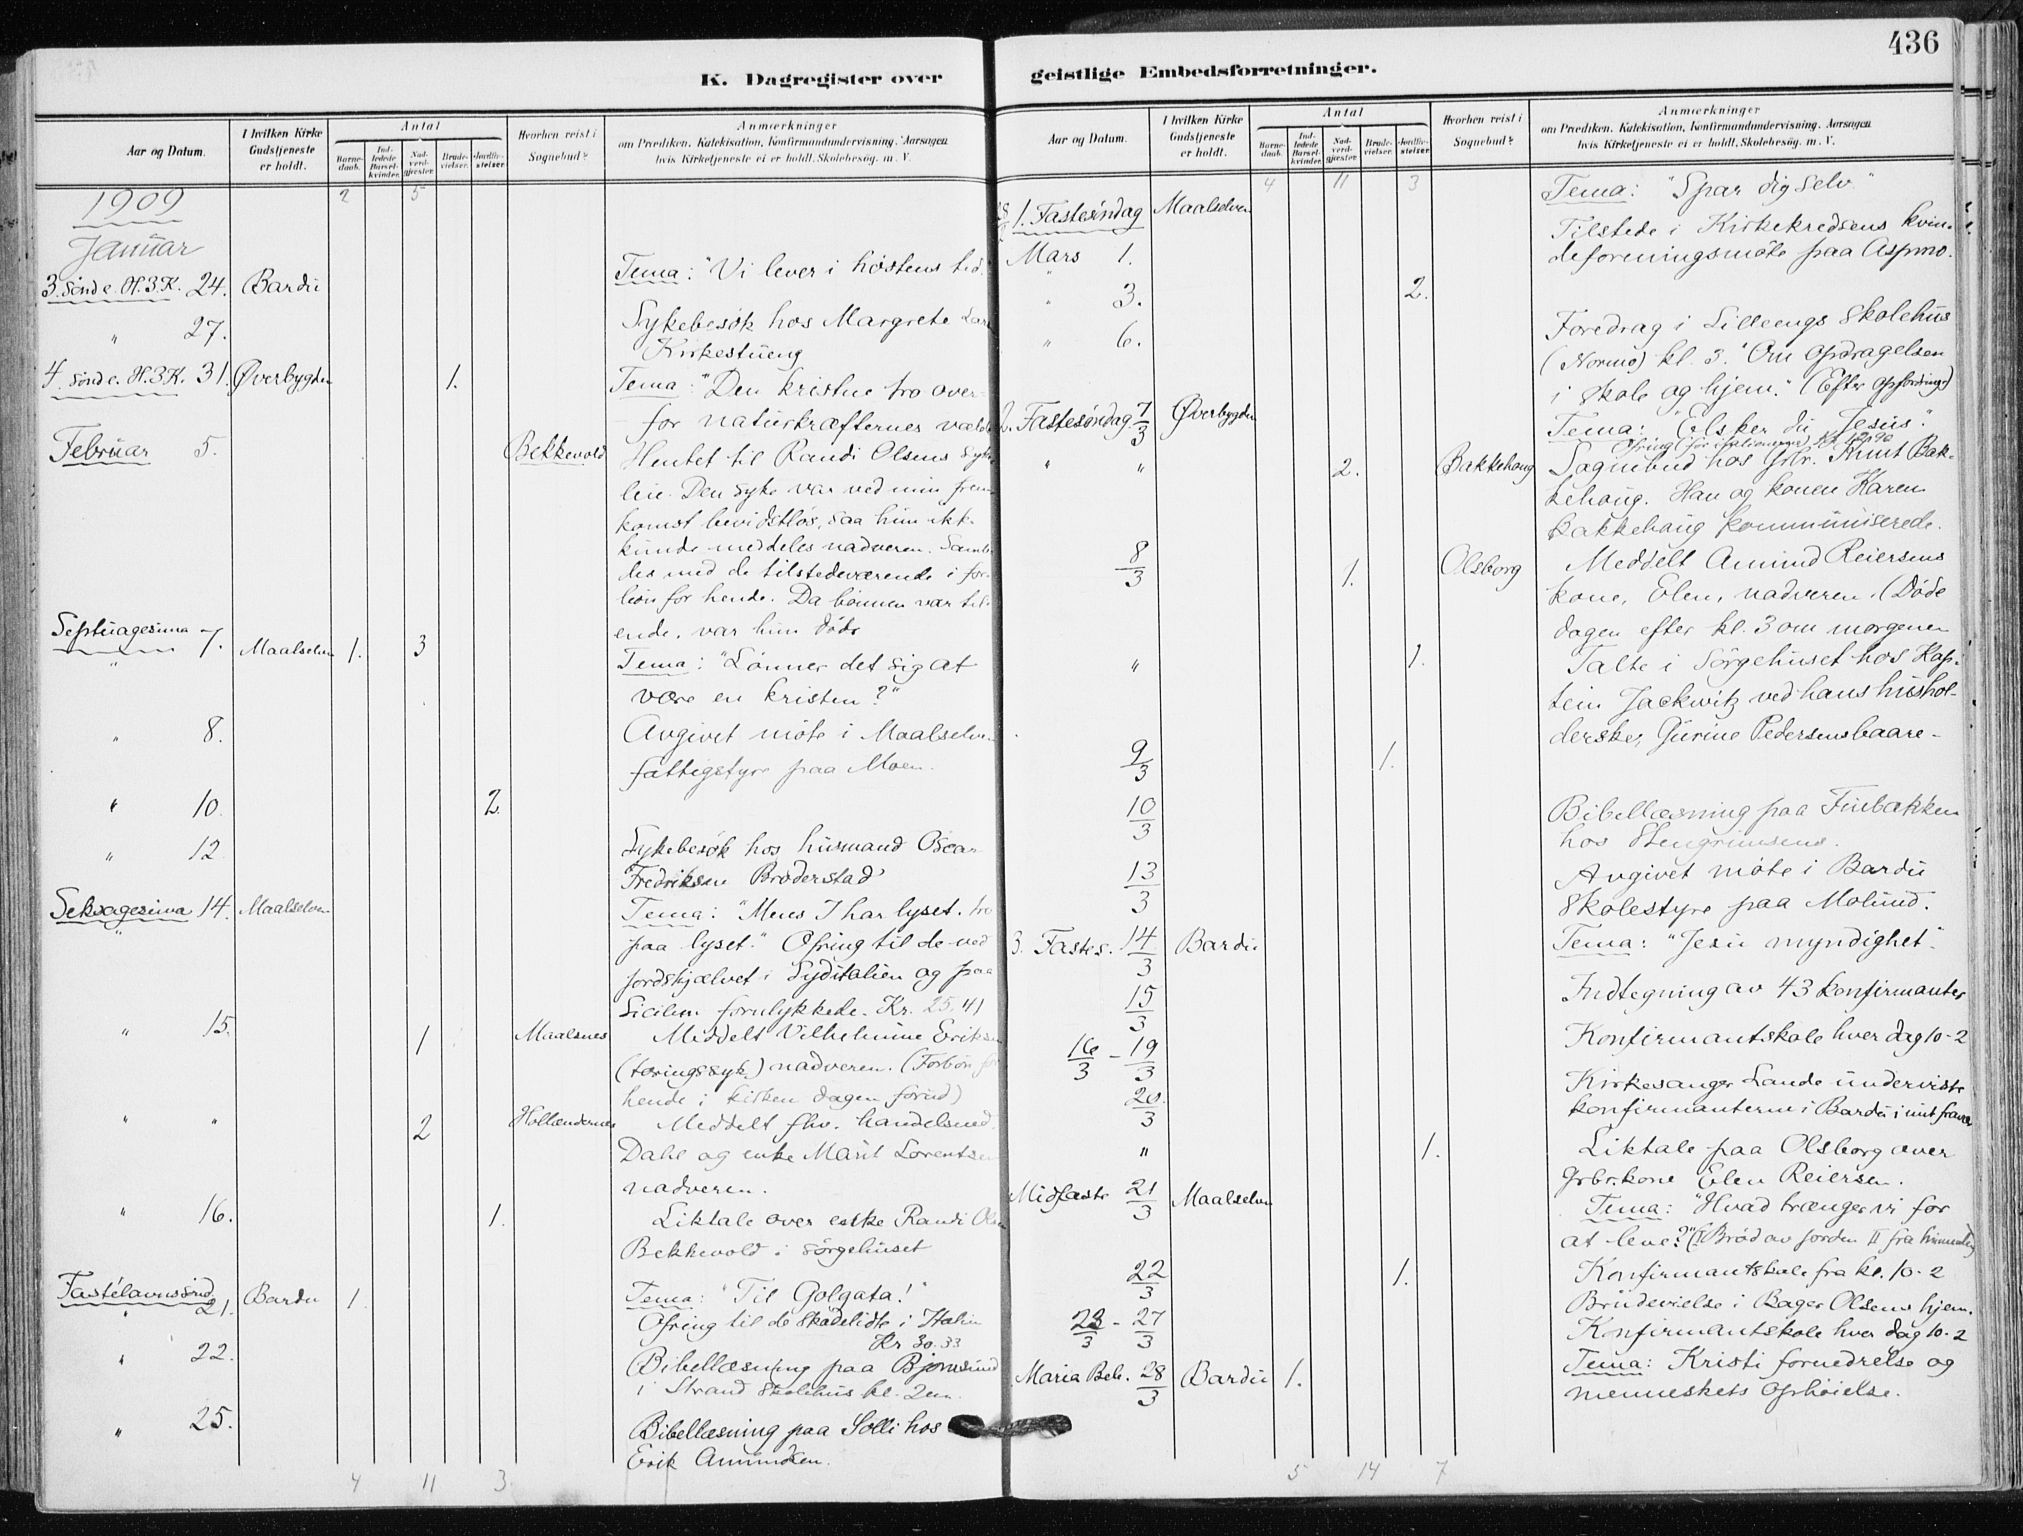 436
K. Dagregister over
Aar og Datum.
I hvilken Kirke
Gudstjeneste
er holdt.
Antal
Barne-
daab.
Ind-
ledede
Barsel-
kvinder.
Nad-
verd-
gjæster.
Brude-
vielser.
Jordfæ-
stelser.
Hvorhen reist i
Sognebud?
Anmærkninger
om Prædiken, Katekisation, Konfirmandundervisning, Aarsagen
hvis Kirketjeneste ei er holdt, Skolebesøg, m. V.
1909 2 5
Januar
3. Sønd e. H.3.K. 24. Bardu Tema: "Vi lever i høstens tid."
" 27. Sykebesøk hos Margrete
Kirkestueng
4. Sønd e. H.3.K. 31. Øverbygden 1. Tema: "Den kristne tro over-
for naturkræfternes
Februar 5. Bekkevold Hentet til Randi Olsens
leie. Den syke var ved min frem
komst bevidstløs, saa hun ikk
kunde meddeles nadveren.
des med de tilstedeværende i for-
bøn for hende. Da bønnen var til
ende, var hun død
Septuagesima 7. Maalselven 1. 3 Tema: "Lønner det sig at
være en kristen?"
" 8. Avgivet møte i Maalselve
fattigstyre paa Moen.
" 10. 2.
" 12. Sykebesøk hos husmand Oscar
Fredriksen Broderstad
Seksagesima 14. Maalselven Tema: "Mens I har lyset, tro
paa lyset." Ofring til de ved
jordskjælvet i Syditalien og paa
Sicilien forulykkede. Kr. 25,41
" 15. 1 Maalsnes Meddelt Vilhelmine Eriksen
(tæringssyk) nadveren. (Forbøn for
hende i kirken dagen forud)
" " 2 Hollændernes Meddelt fhv. handelsmed.
Dahl og enke Marit Lorentsen
nadveren.
" 16. 1. Liktale over enke Randi Olsen
Bekkevold i sørgehuset
Fastelavnssønd. 21. Bardu 1. Tema: "Til Golgata!"
Ofring til de skadelidte i Italien
Kr 30.33
" 22. Bibellæsning paa Bjørnsund
i Strand Skolehus kl. 2 em.
" 25. Bibellæsning paa Solli hos
Erik Amundsen.
4 11 3
geistlige Embedsforretninger.
Aar og Datum.
I hvilken Kirke
Gudstjeneste
er holdt.
Antal
Barne-
daab.
Ind-
ledede
Barsel-
kvinder.
Nad-
verd-
gjæster.
Brude-
vielser.
Jordfæ-
stelser.
Hvorhen reist i
Sognebud?
Anmærkninger
om Prædiken, Katekisation, Konfirmandundervisning, Aarsagen
hvis Kirketjeneste ei er holdt, Skolebesøg, m. V.
4 11 3
28/2 1. Fastesøndag Maalselven Tema: "Spar dig selv"
Mars 1. Tilstede i Kirkekredsens kvin-
deforeningsmøte paa Aspmo.
" 3. 2.
" 6. Foredrag i Lilleengs Skolehus
(Normo) kl. 3. "Om opdragelsen
i skole og hjem." (Efter opfordring)
2. Fastesøndag 7/3 Øverbygden Tema: "Elsker du Jesus".
" " 2. Bakkehaug Sognebud hos Gbr. Knut Bak-
kehaug. Han og konen Karen
Bakkehaug kommuniserede.
8/3 1. Olsborg Meddelt Amund Reiersens
kone, Elen, nadveren. (Døde
dagen efter kl. 3 om morgenen
" 1. Talte i Sørgehuset hos Kap-
tein Jackwitz ved hans hushol-
derske, Gurine Pedersens baare-
9/3 1.
10/3 Bibellæsning paa Furebakken
hos Stengrimsens.
13/3 Avgivet møte i Bardu
Skolestyre paa Molund.
3. Fastes. 14/3 Bardu Tema: "Jesu myndighet".
15/3 Indtegning av 43 konfirmanter
16/3 - 19/3 Konfirmantskole hver dag 10-2
20/3 Kirkesanger Lande underviste
konfirmanterne i Bardu i mit fravær
" 1. Liktale paa Olsborg over
Grbr.kone Elen Reiersen.
Midfaste 21/3 Maalselven Tema: "Hvad trænger vi for
at leve?" (I Brød av jorden II fra himmelen)
22/3 1. Konfirmantskole fra kl. 10-2
Brudevielse i Bager Olsens hjem.
23/3 - 27/3 Konfirmantskole hver dag 10-2
Maria Beb. 28/3 Bardu 1. Tema: Kristi fornedrelse og
menneskets ophøielse.
5 14 7